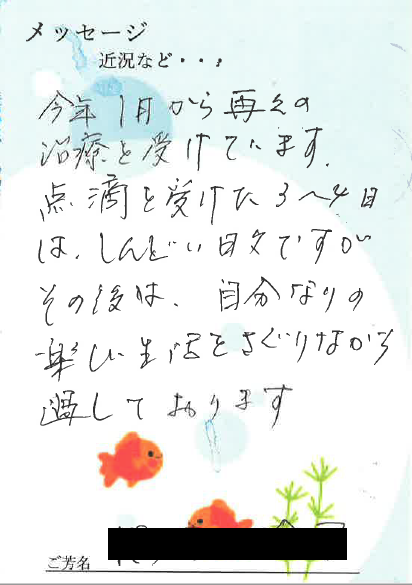 メッセージ
近況など・・・
今年1月から再々の
治療を受けています.
点滴を受けた3〜4日
は、しんどい日々ですが
その後は、自分なりの
楽しい生活をさぐりながら
過しております
ご芳名